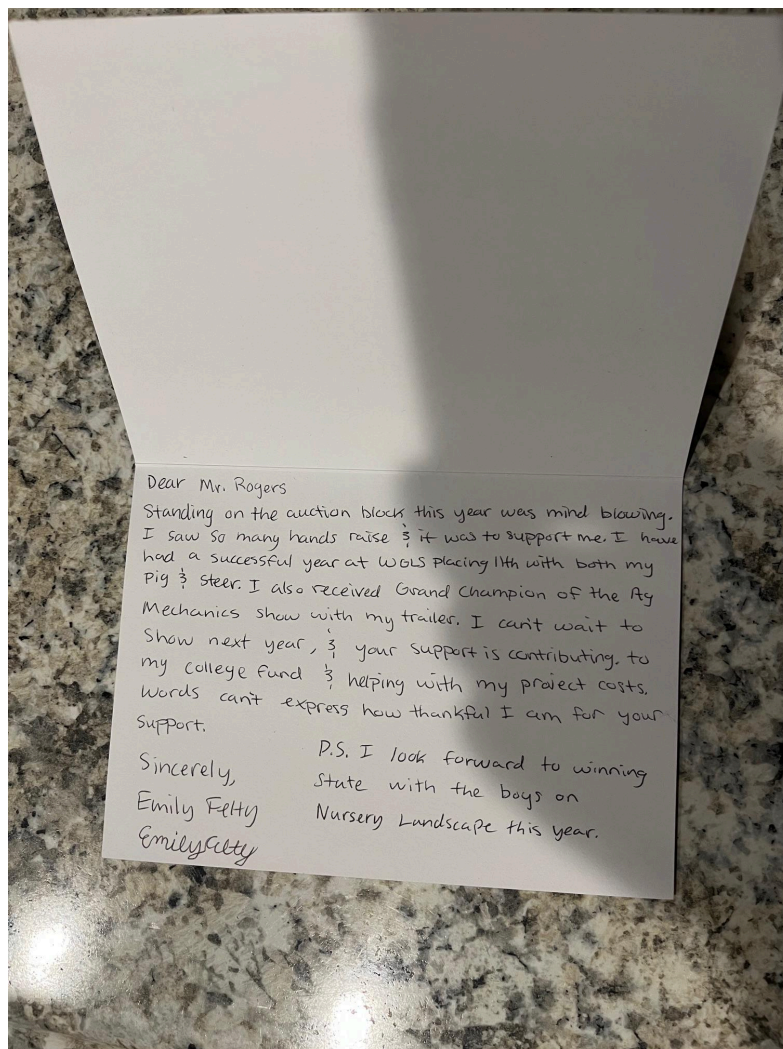 Dear Mr. Rogers
Standing on the auction block this year was mind blowing.
I saw so many hands raise & it was to support me. I have
had a successful year at WGLS placing 11th with both my
Pig & Steer. I also received Grand Champion of the Ag
Mechanics show with my trailer. I can't wait to
Show next year, & your support is contributing. to
my college fund & helping with my project costs.
Words can't express how thankful I am for your
support.
Sincerely,
Emily Felty
Emily Felty
P.S. I look forward to winning
State with the boys on
Nursery Landscape this year.